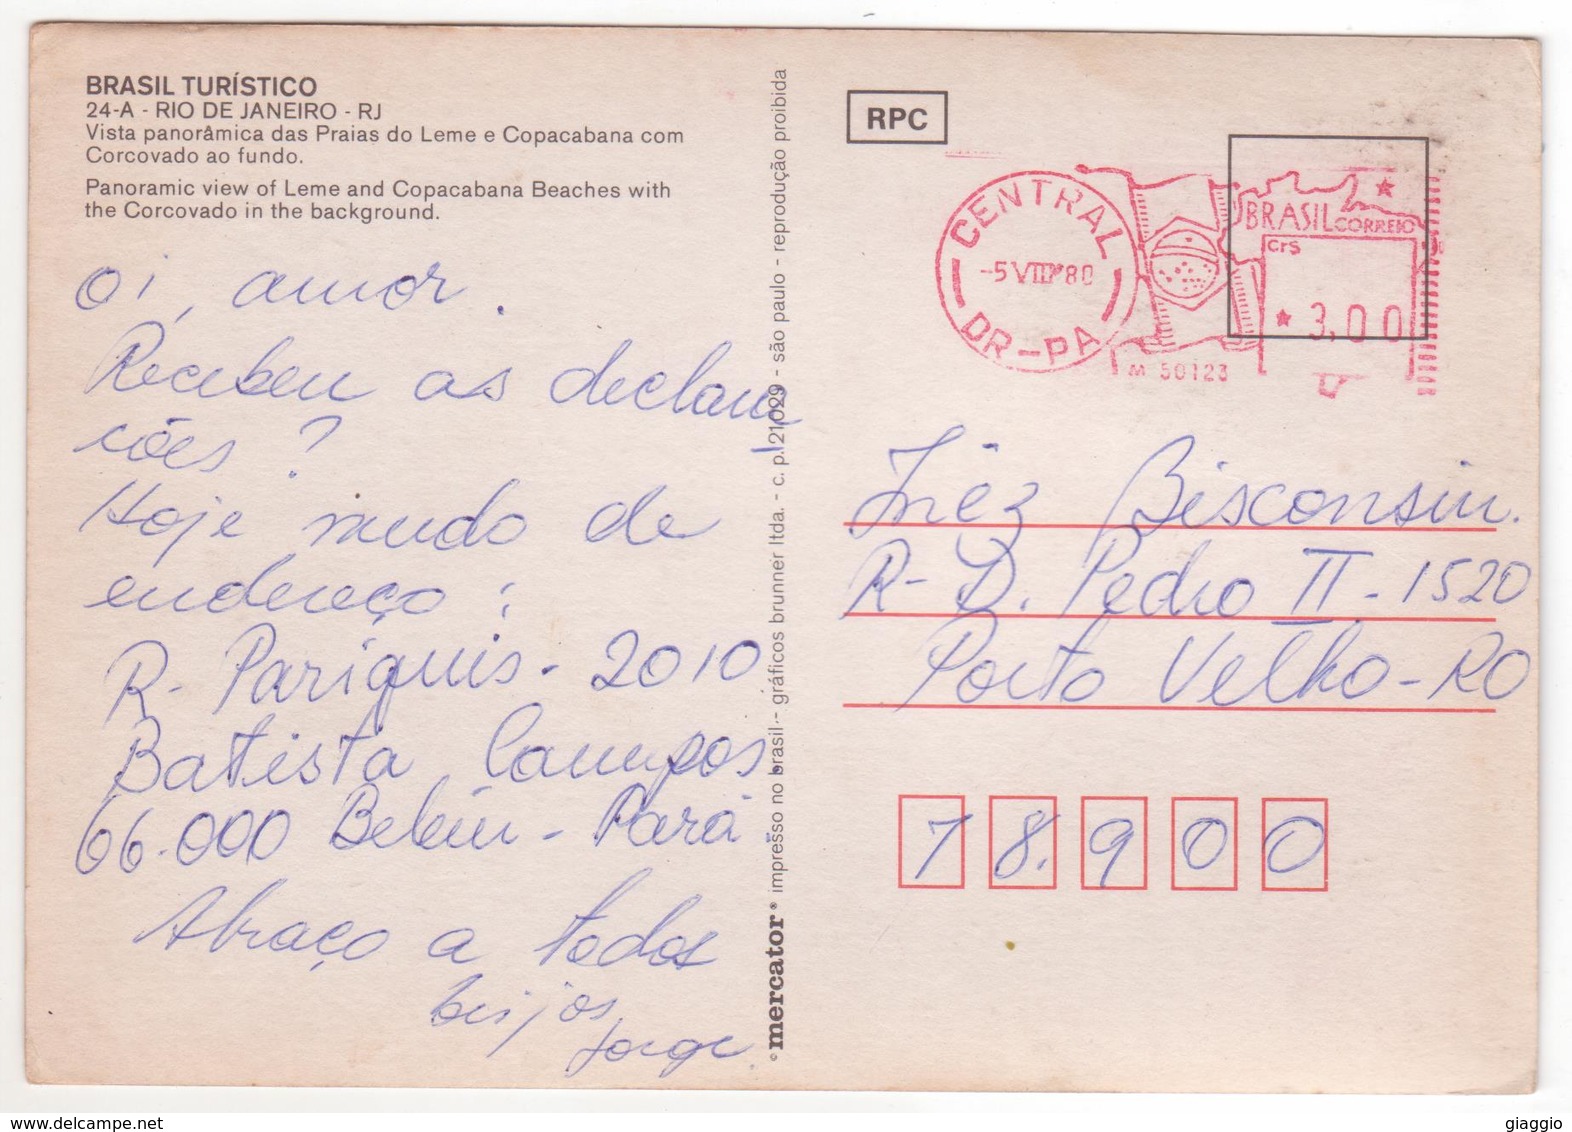 BRASIL TURÍSTICO
24-A - RIO DE JANEIRO - RJ
Vista panorâmica das Praias do Leme e Copacabana com
Corcovado ao fundo.
Panoramic view of Leme and Copacabana Beaches with
the Corcovado in the background.
Oi, amor.
Recebeu as declara
ções?
Hoje mudo de
endereço:
R- Pariquis - 2010
Batista Campos
66.000 Belém - Pará
Abraço a todos
beijos
Jorge
mercator® impresso no brasil - gráficos brunner ltda. - c. p. 21029 - são paulo - reprodução proibida
RPC
CENTRAL
-5 VIII 80
DR-PA
M 50123
BRASIL CORREIO
Cr$
3,00
Inêz Bisconsin.
R- D. Pedro II - 1520
Porto Velho - RO
78.900
giaggio